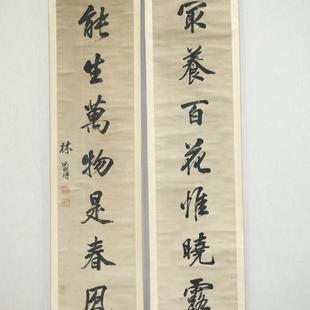 冣養百花惟曉露
能生萬物是春風
林